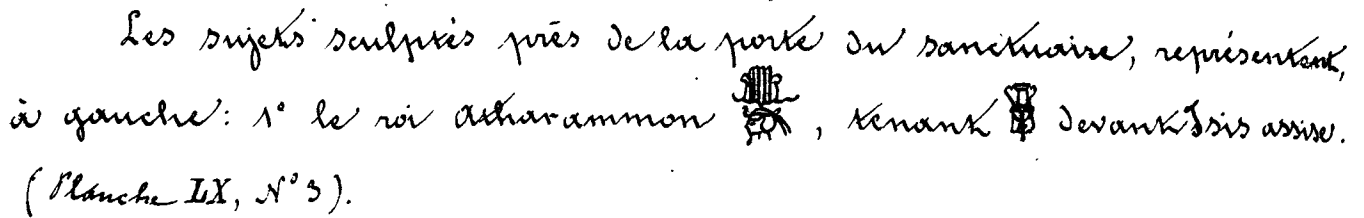 Les sujets sculptés près de la porte du sanctuaire, représentent,
à gauche: 1° le roi Atharammon , tenant devant Isis assise.
(Planche LX, N° 3).